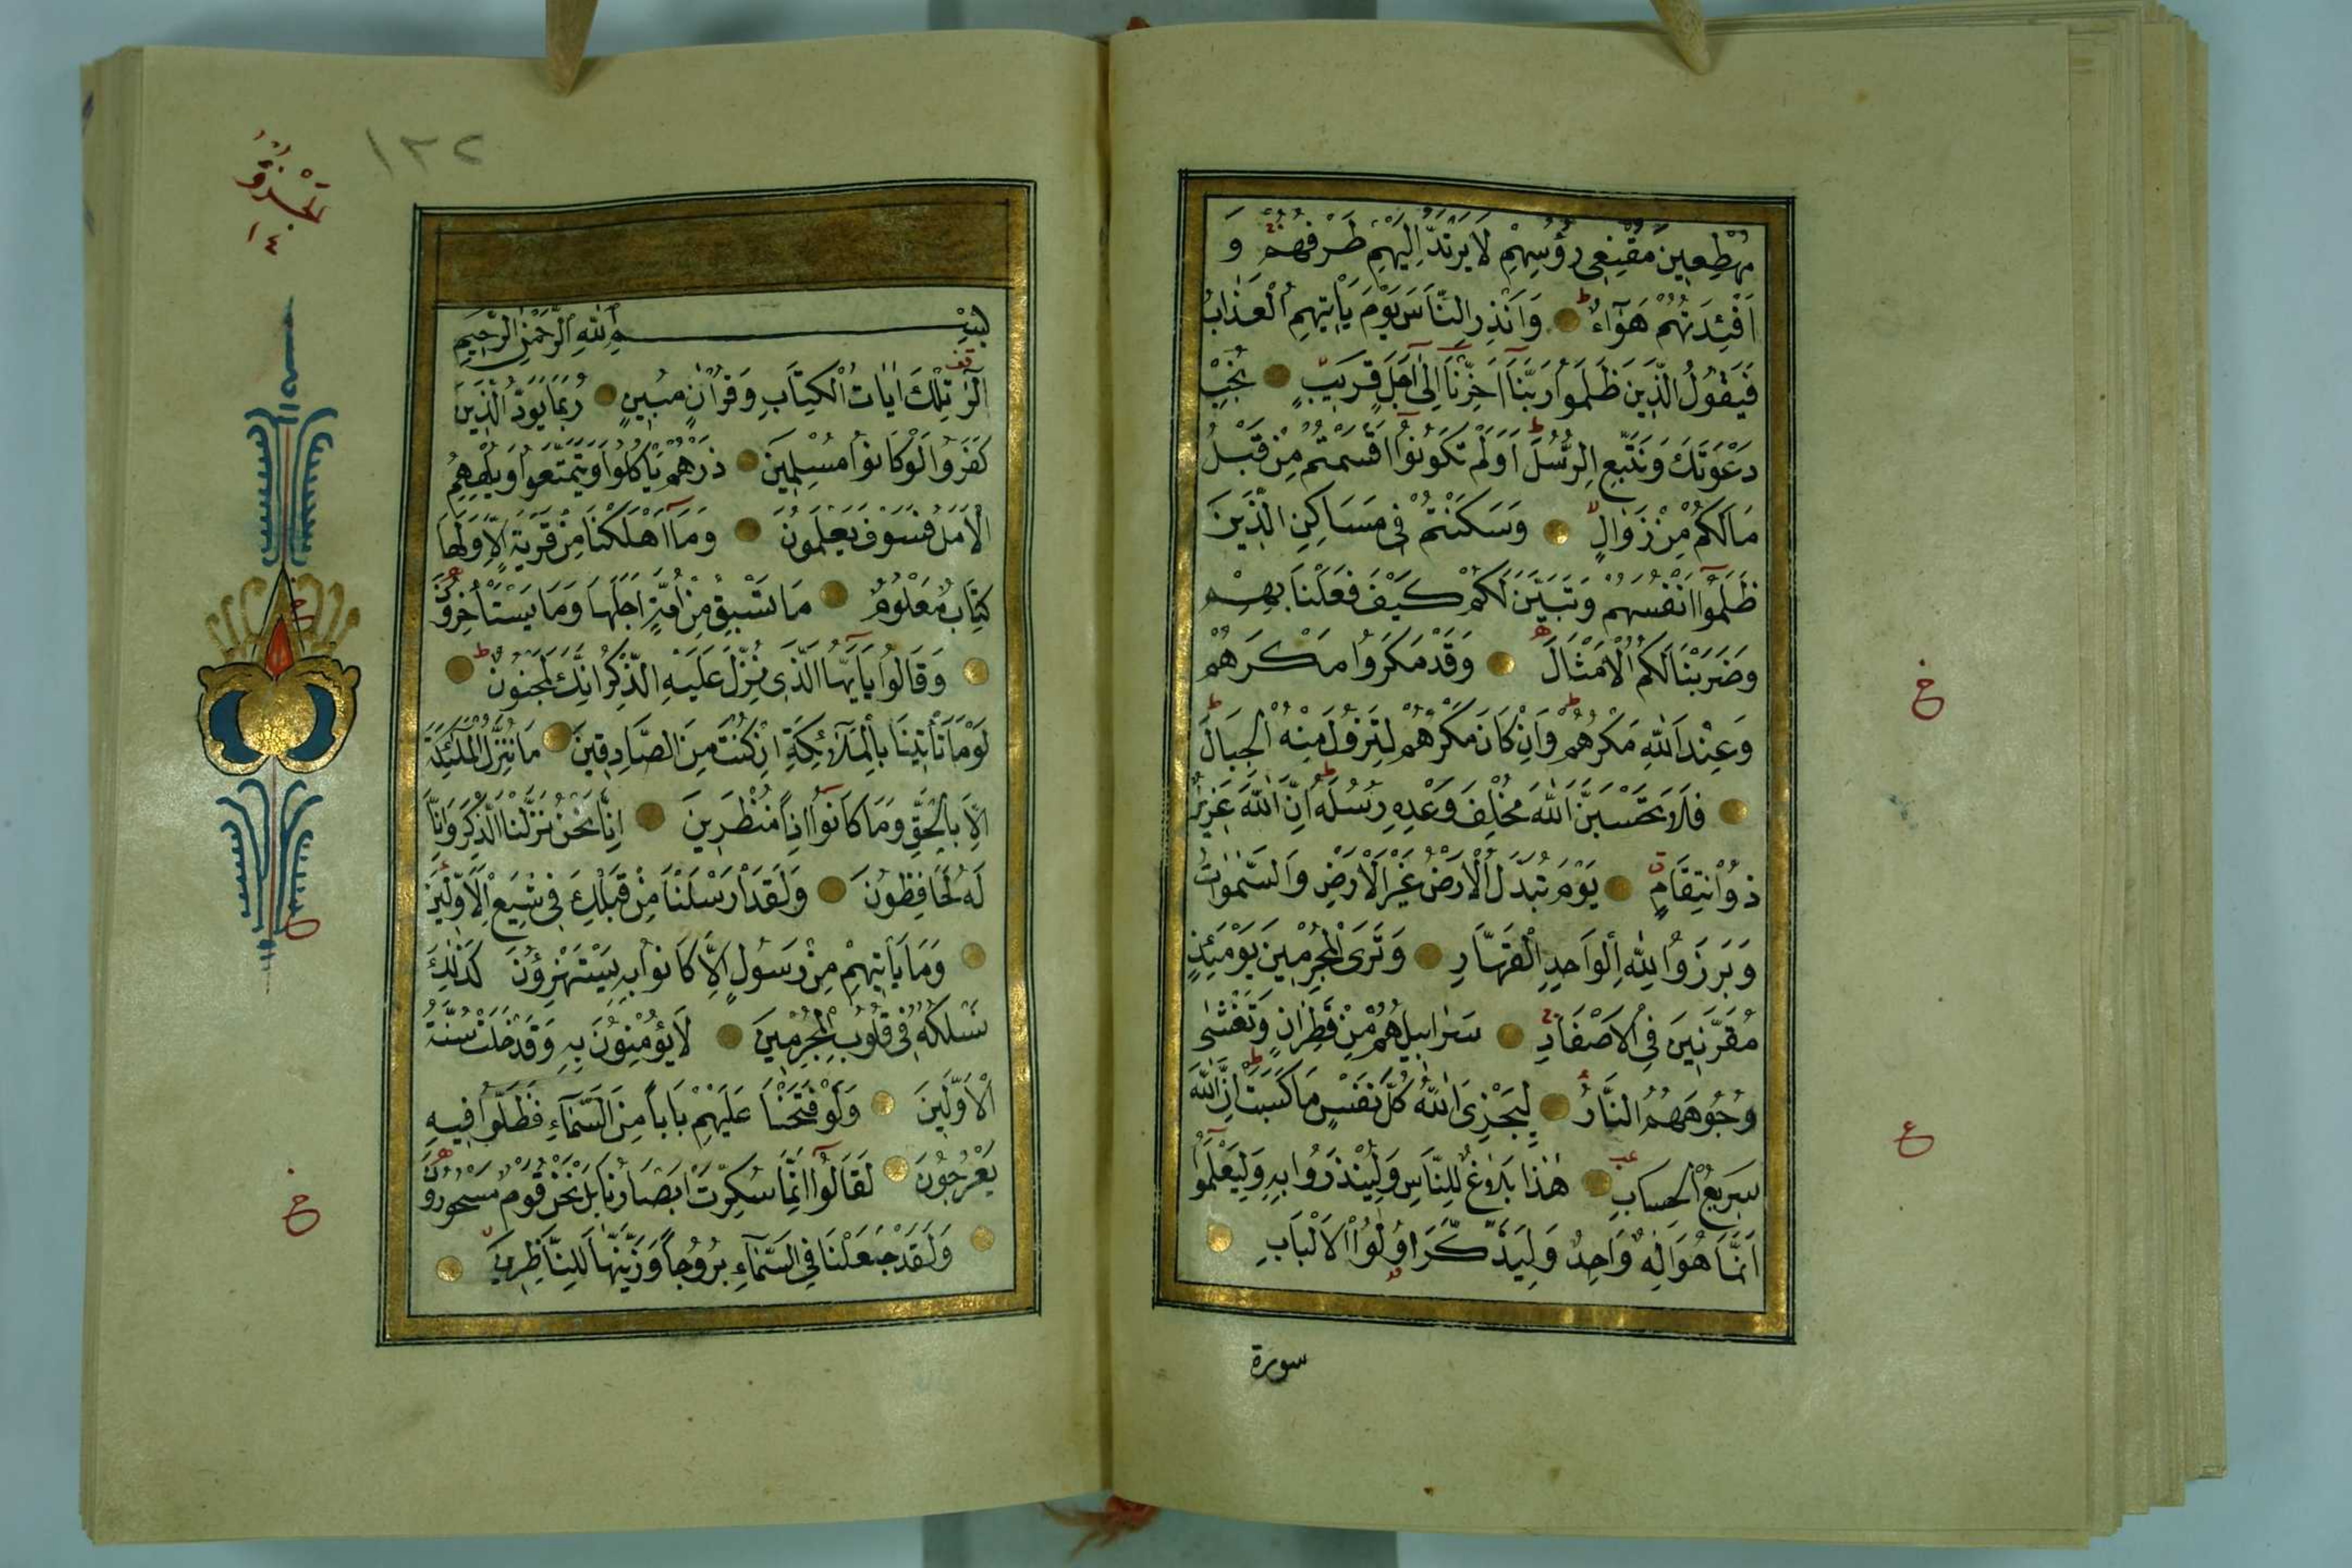 مُهْطِعِينَ مُقْنِعِي رُؤُسِهِمْ لَا يَرْتَدُّ اِلَيْهِمْ طَرْفُهُمْ وَ
اَفْئِدَتُهُمْ هَوَآءٌ وَاَنْذِرِ النَّاسَ يَوْمَ يَأْتِيهِمُ الْعَذَابُ
فَيَقُولُ الَّذِينَ ظَلَمُوا رَبَّنَآ اَخِّرْنَآ اِلٰٓى اَجَلٍ قَرِيبٍ نُجِبْ
دَعْوَتَكَ وَنَتَّبِعِ الرُّسُلَ اَوَلَمْ تَكُونُوٓا اَقْسَمْتُمْ مِنْ قَبْلُ
مَالَكُمْ مِنْ زَوَالٍ وَسَكَنْتُمْ فِي مَسَاكِنِ الَّذِينَ
ظَلَمُوٓا اَنْفُسَهُمْ وَتَبَيَّنَ لَكُمْ كَيْفَ فَعَلْنَا بِهِمْ
وَضَرَبْنَا لَكُمُ الْاَمْثَالَ وَقَدْ مَكَرُوا مَكْرَهُمْ
وَعِنْدَ اللّٰهِ مَكْرُهُمْ وَاِنْ كَانَ مَكْرُهُمْ لِتَزُولَ مِنْهُ الْجِبَالُ
فَلَا تَحْسَبَنَّ اللّٰهَ مُخْلِفَ وَعْدِهِ رُسُلَهُ اِنَّ اللّٰهَ عَزِيزٌ
ذُو انْتِقَامٍ يَوْمَ تُبَدَّلُ الْاَرْضُ غَيْرَ الْاَرْضِ وَالسَّمٰوَاتُ
وَبَرَزُوا لِلّٰهِ الْوَاحِدِ الْقَهَّارِ وَتَرَى الْمُجْرِمِينَ يَوْمَئِذٍ
مُقَرَّنِينَ فِي الْاَصْفَادِ سَرَابِيلُهُمْ مِنْ قَطِرَانٍ وَتَغْشٰى
وُجُوهَهُمُ النَّارُ لِيَجْزِيَ اللّٰهُ كُلَّ نَفْسٍ مَا كَسَبَتْ اِنَّ اللّٰهَ
سَرِيعُ الْحِسَابِ هٰذَا بَلَاغٌ لِلنَّاسِ وَلِيُنْذَرُوا بِهِ وَلِيَعْلَمُوٓا
اَنَّمَا هُوَ اِلٰهٌ وَاحِدٌ وَلِيَذَّكَّرَ اُولُوا الْاَلْبَابِ
سورة
خ
ع
١٣٢
الجزؤ
١٤
بِسْمِ اللّٰهِ الرَّحْمٰنِ الرَّحِيمِ
الٓرٰ تِلْكَ اٰيَاتُ الْكِتَابِ وَقُرْاٰنٍ مُبِينٍ رُبَمَا يَوَدُّ الَّذِينَ
كَفَرُوا لَوْ كَانُوا مُسْلِمِينَ ذَرْهُمْ يَأْكُلُوا وَيَتَمَتَّعُوا وَيُلْهِهِمُ
الْاَمَلُ فَسَوْفَ يَعْلَمُونَ وَمَآ اَهْلَكْنَا مِنْ قَرْيَةٍ اِلَّا وَلَهَا
كِتَابٌ مَعْلُومٌ مَا تَسْبِقُ مِنْ اُمَّةٍ اَجَلَهَا وَمَا يَسْتَأْخِرُونَ
وَقَالُوا يَآ اَيُّهَا الَّذِي نُزِّلَ عَلَيْهِ الذِّكْرُ اِنَّكَ لَمَجْنُونٌ
لَوْ مَا تَأْتِينَا بِالْمَلٰٓئِكَةِ اِنْ كُنْتَ مِنَ الصَّادِقِينَ مَا نُنَزِّلُ الْمَلٰئِكَةَ
اِلَّا بِالْحَقِّ وَمَا كَانُوٓا اِذًا مُنْظَرِينَ اِنَّا نَحْنُ نَزَّلْنَا الذِّكْرَ وَاِنَّا
لَهُ لَحَافِظُونَ وَلَقَدْ اَرْسَلْنَا مِنْ قَبْلِكَ فِي شِيَعِ الْاَوَّلِينَ
وَمَا يَأْتِيهِمْ مِنْ رَسُولٍ اِلَّا كَانُوا بِهِ يَسْتَهْزِؤُنَ كَذٰلِكَ
نَسْلُكُهُ فِي قُلُوبِ الْمُجْرِمِينَ لَا يُؤْمِنُونَ بِهِ وَقَدْ خَلَتْ سُنَّةُ
الْاَوَّلِينَ وَلَوْ فَتَحْنَا عَلَيْهِمْ بَابًا مِنَ السَّمَآءِ فَظَلُّوا فِيهِ
يَعْرُجُونَ لَقَالُوٓا اِنَّمَا سُكِّرَتْ اَبْصَارُنَا بَلْ نَحْنُ قَوْمٌ مَسْحُورُونَ
وَلَقَدْ جَعَلْنَا فِي السَّمَآءِ بُرُوجًا وَزَيَّنَّاهَا لِلنَّاظِرِينَ
خ